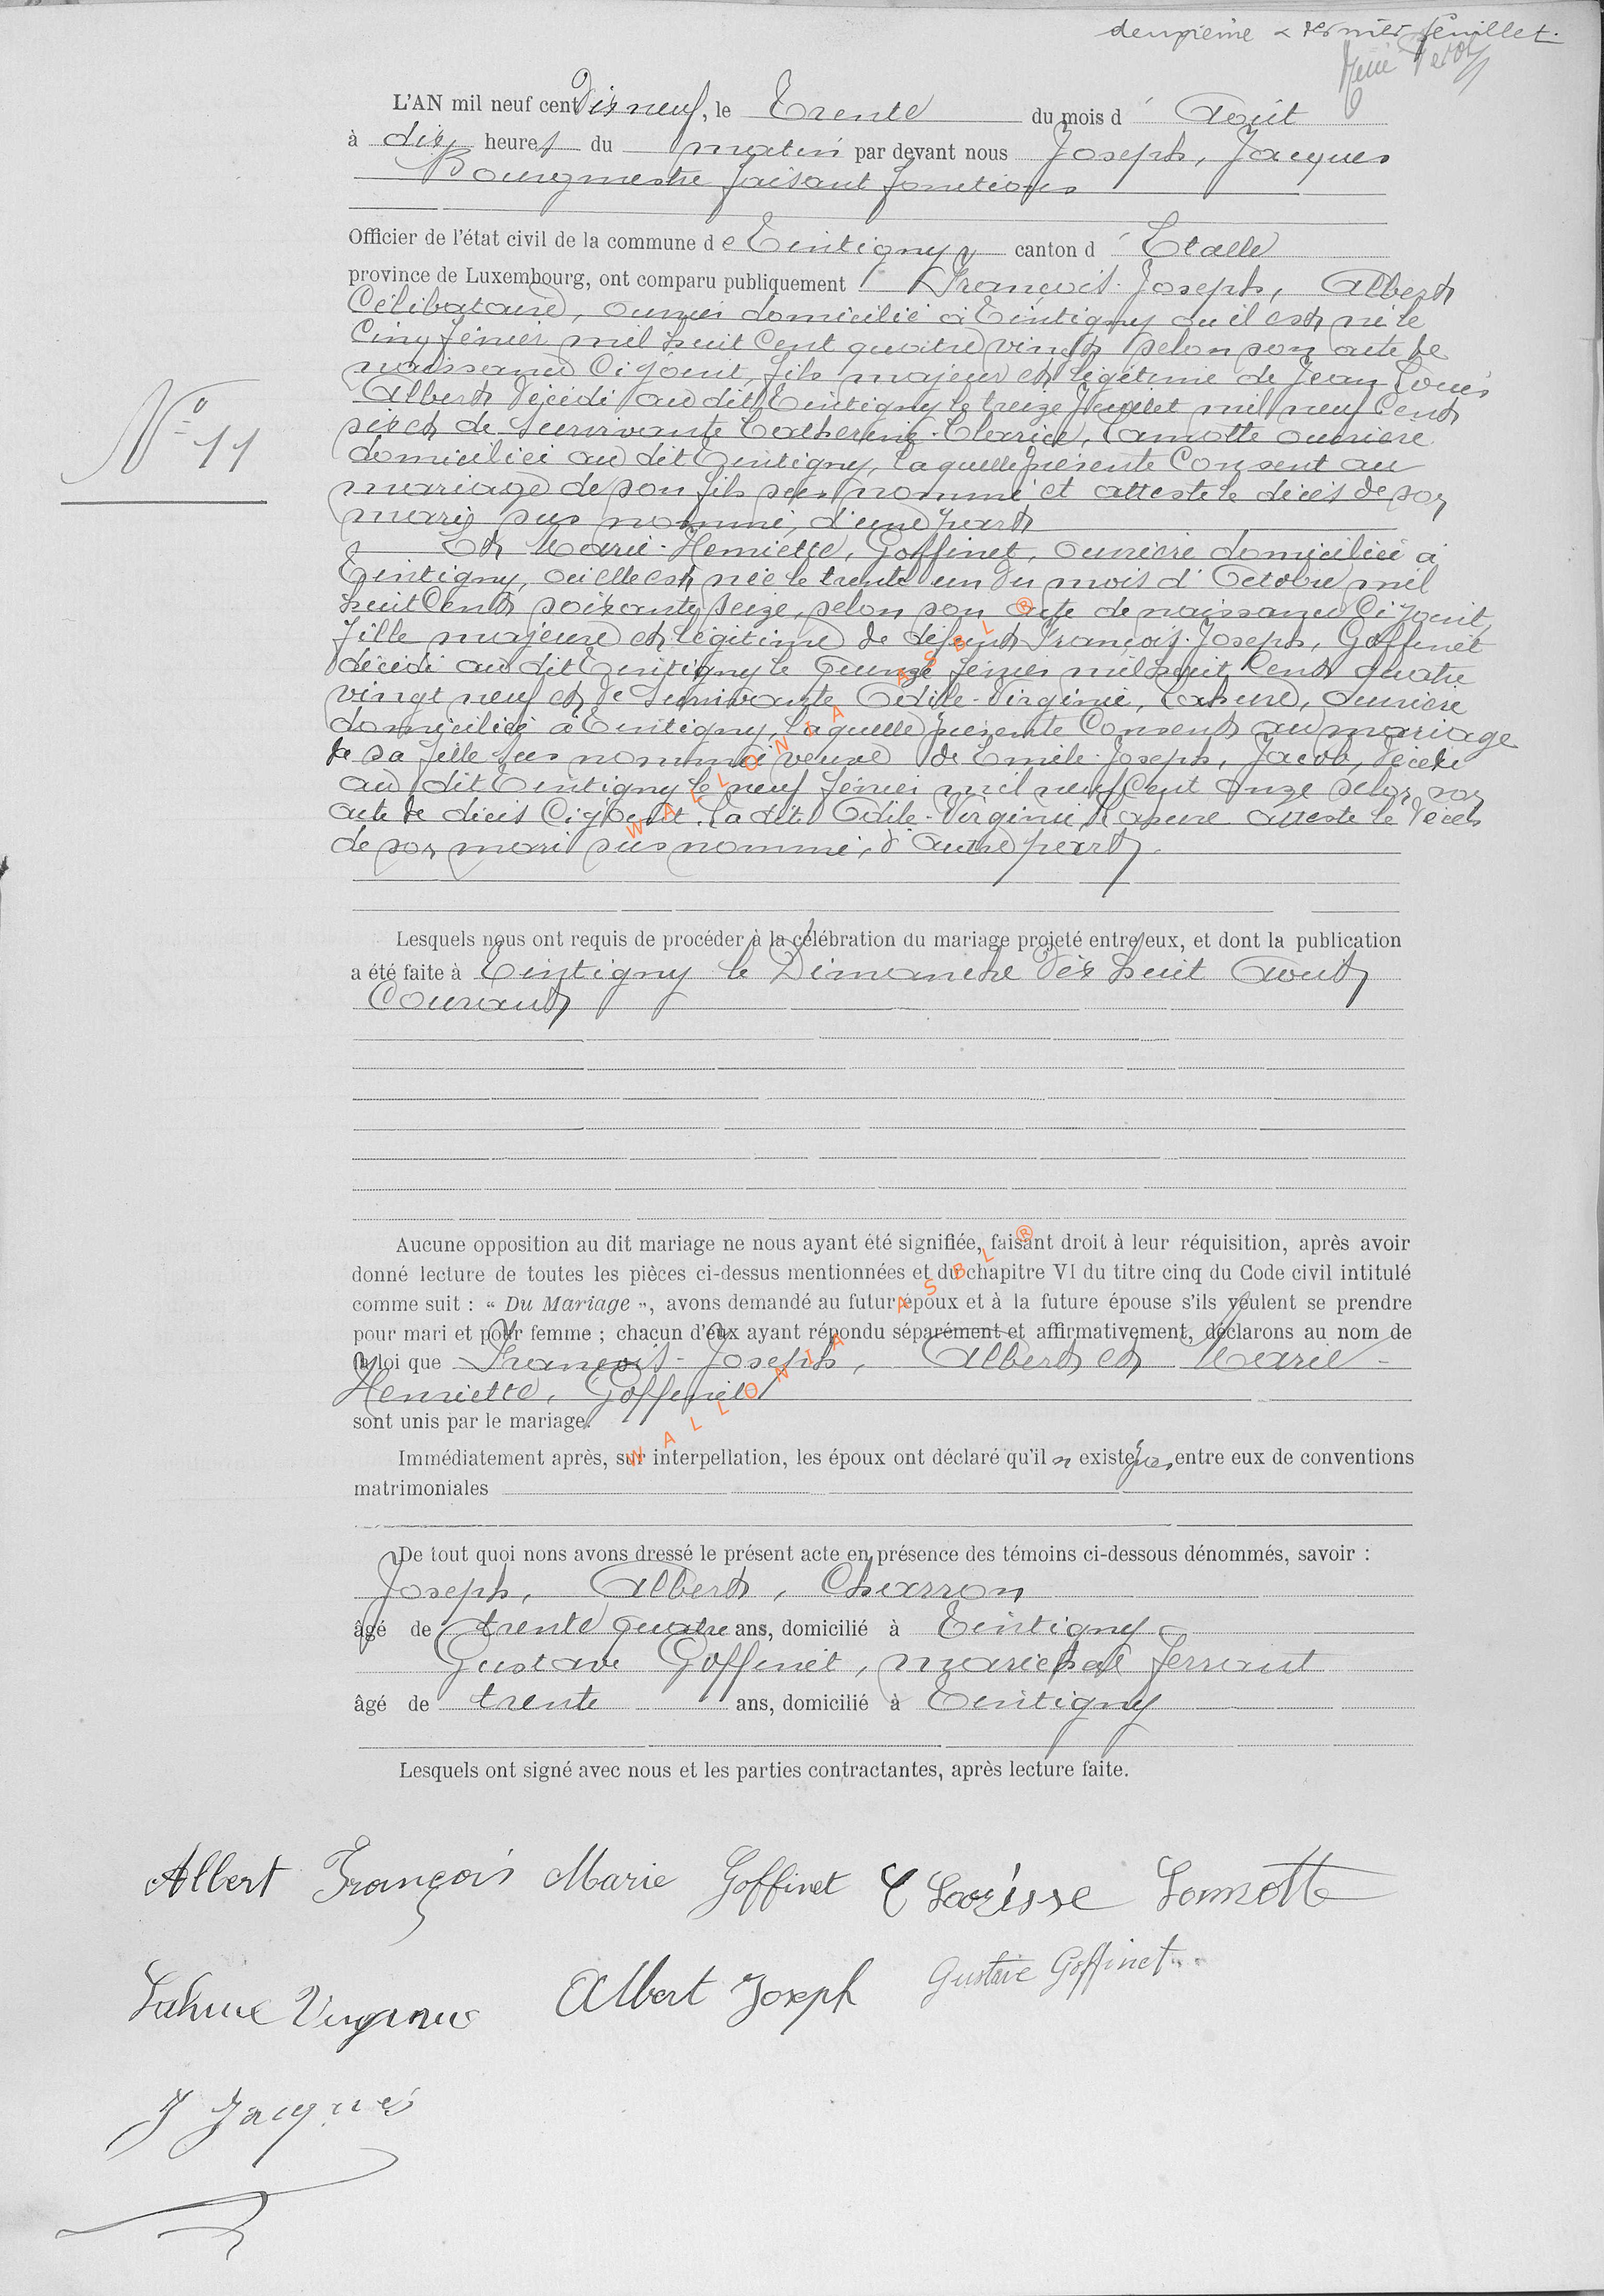 deuxième & dernier feuillet.
L'AN mil neuf cent Dix neuf, le Trente du mois d' Août
à dix heures du matin par devant nous Joseph, Jacques
Bourgmestre faisant fonctions
Officier de l'état civil de la commune de Tintigny canton d' Etalle
province de Luxembourg, ont comparu publiquement François-Joseph, Albert
Célibataire, ouvrier domicilié à Tintigny où il est né le
Cinq février mil huit Cent quatre vingt selon son acte de
naissance Ci joint, fils majeur et légitime de Jean Louis
Albert décédé au dit Tintigny le treize Juillet mil neuf Cent
six et de survivante Catherine-Clarice, Lamotte ouvrière
domiciliée au dit Tintigny, laquelle présente Consent au
mariage de son fils sus nommé et atteste le décès de son
mari sus nommé, d'une part
Et Marie-Henriette, Goffinet, ouvrière domiciliée à
Tintigny, où elle est née le trente un du mois d'Octobre mil
huit Cent soixante seize, selon son acte de naissance Ci joint,
fille majeure et légitime de défunt François-Joseph, Goffinet
décédé au dit Tintigny le Quinze février mil huit Cent quatre
vingt neuf et de survivante Odile-Virginie, Lahure, ouvrière
domiciliée à Tintigny, laquelle présente Consent au mariage
de sa fille sus nommée veuve de Emile-Joseph, Jacob, décédé
au dit Tintigny le neuf février mil neuf Cent onze selon son
acte de décès Ci joint. La dite Odile-Virginie, Lahure atteste le décès
de son mari sus nommé, d'autre part.
N° 11
Lesquels nous ont requis de procéder à la célébration du mariage projeté entre eux, et dont la publication
a été faite à Tintigny le Dimanche Dix huit Août
Courant
Aucune opposition au dit mariage ne nous ayant été signifiée, faisant droit à leur réquisition, après avoir
donné lecture de toutes les pièces ci-dessus mentionnées et du chapitre VI du titre cinq du Code civil intitulé
comme suit : « Du Mariage », avons demandé au futur époux et à la future épouse s'ils veulent se prendre
pour mari et pour femme ; chacun d'eux ayant répondu séparément et affirmativement, déclarons au nom de
la loi que François-Joseph, Albert et Marie-
Henriette, Goffinet
sont unis par le mariage.
Immédiatement après, sur interpellation, les époux ont déclaré qu'il n existe pas entre eux de conventions
matrimoniales
De tout quoi nons avons dressé le présent acte en présence des témoins ci-dessous dénommés, savoir :
Joseph, Albert, Charron
âgé de trente quatre ans, domicilié à Tintigny
Gustave Goffinet, maréchal ferrant
âgé de trente ans, domicilié à Tintigny
Lesquels ont signé avec nous et les parties contractantes, après lecture faite.
Albert François Marie Goffinet Clarisse Lamotte
Lahure Virginie Albert Joseph Gustave Goffinet
J Jacques
WALLONIA ASBL ®
WALLONIA ASBL ®